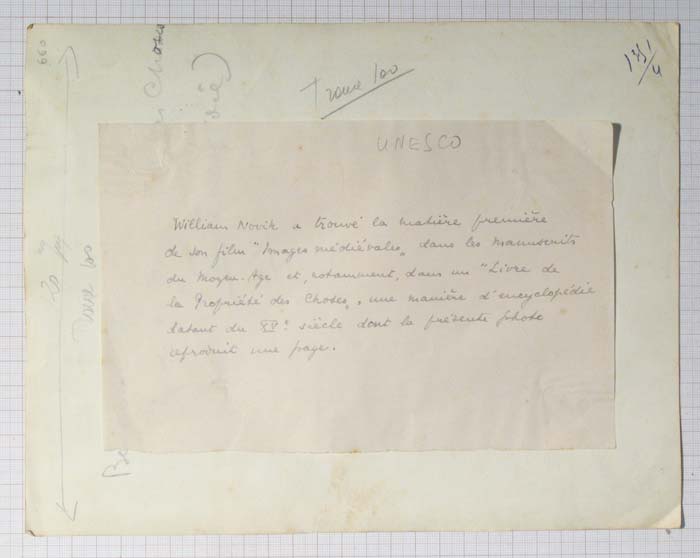 Trame 100
UNESCO
William Novik a trouvé la matière première
de son film "Images médiévales„ dans les manuscrits
du Moyen-Age et, notamment, dans un "Livre de
la Propriété des Choses„, une manière d'encyclopédie
datant du XVe siècle dont la présente photo
reproduit une page.
660
Choses
Trame 100